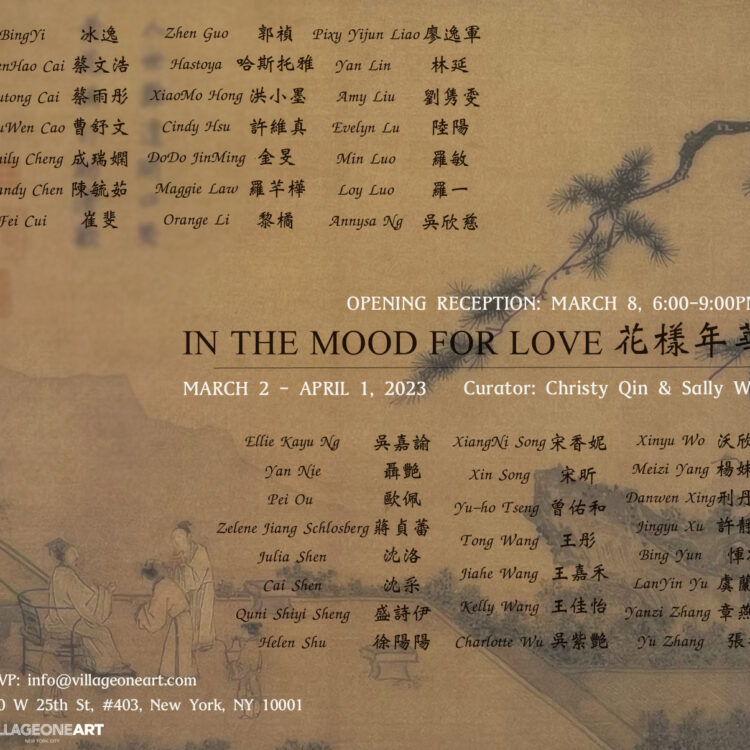 BingYi 冰逸 Zhen Guo 郭禎 Pixy Yijun Liao 廖逸軍
enHao Cai 蔡文浩 Hastoya 哈斯托雅 Yan Lin 林延
utong Cai 蔡雨彤 XiaoMo Hong 洪小墨 Amy Liu 劉雋雯
uWen Cao 曹舒文 Cindy Hsu 許維真 Evelyn Lu 陸陽
mily Cheng 成瑞嫻 DoDo JinMing 金旻 Min Luo 羅敏
andy Chen 陳毓茹 Maggie Law 羅芊樺 Loy Luo 羅一
Fei Cui 崔斐 Orange Li 黎橘 Annysa Ng 吳欣慈
OPENING RECEPTION: MARCH 8, 6:00-9:00PM
IN THE MOOD FOR LOVE 花樣年華
MARCH 2 - APRIL 1, 2023 Curator: Christy Qin & Sally W
Ellie Kayu Ng 吳嘉諭 XiangNi Song 宋香妮 Xinyu Wo 沃欣
Yan Nie 聶艷 Xin Song 宋昕 Meizi Yang 楊妹
Pei Ou 歐佩 Yu-ho Tseng 曾佑和 Danwen Xing 刑丹
Zelene Jiang Schlosberg 蔣貞蕾 Tong Wang 王彤 Jingyu Xu 許靜
Julia Shen 沈洛 Jiahe Wang 王嘉禾 Bing Yun 惲
Cai Shen 沈采 Kelly Wang 王佳怡 LanYin Yu 虞蘭
Quni Shiyi Sheng 盛詩伊 Charlotte Wu 吳紫艷 Yanzi Zhang 章燕
Helen Shu 徐陽陽 Yu Zhang 張
VP: info@villageoneart.com
0 W 25th St, #403, New York, NY 10001
ILLAGEONEART
NEW YORK CITY